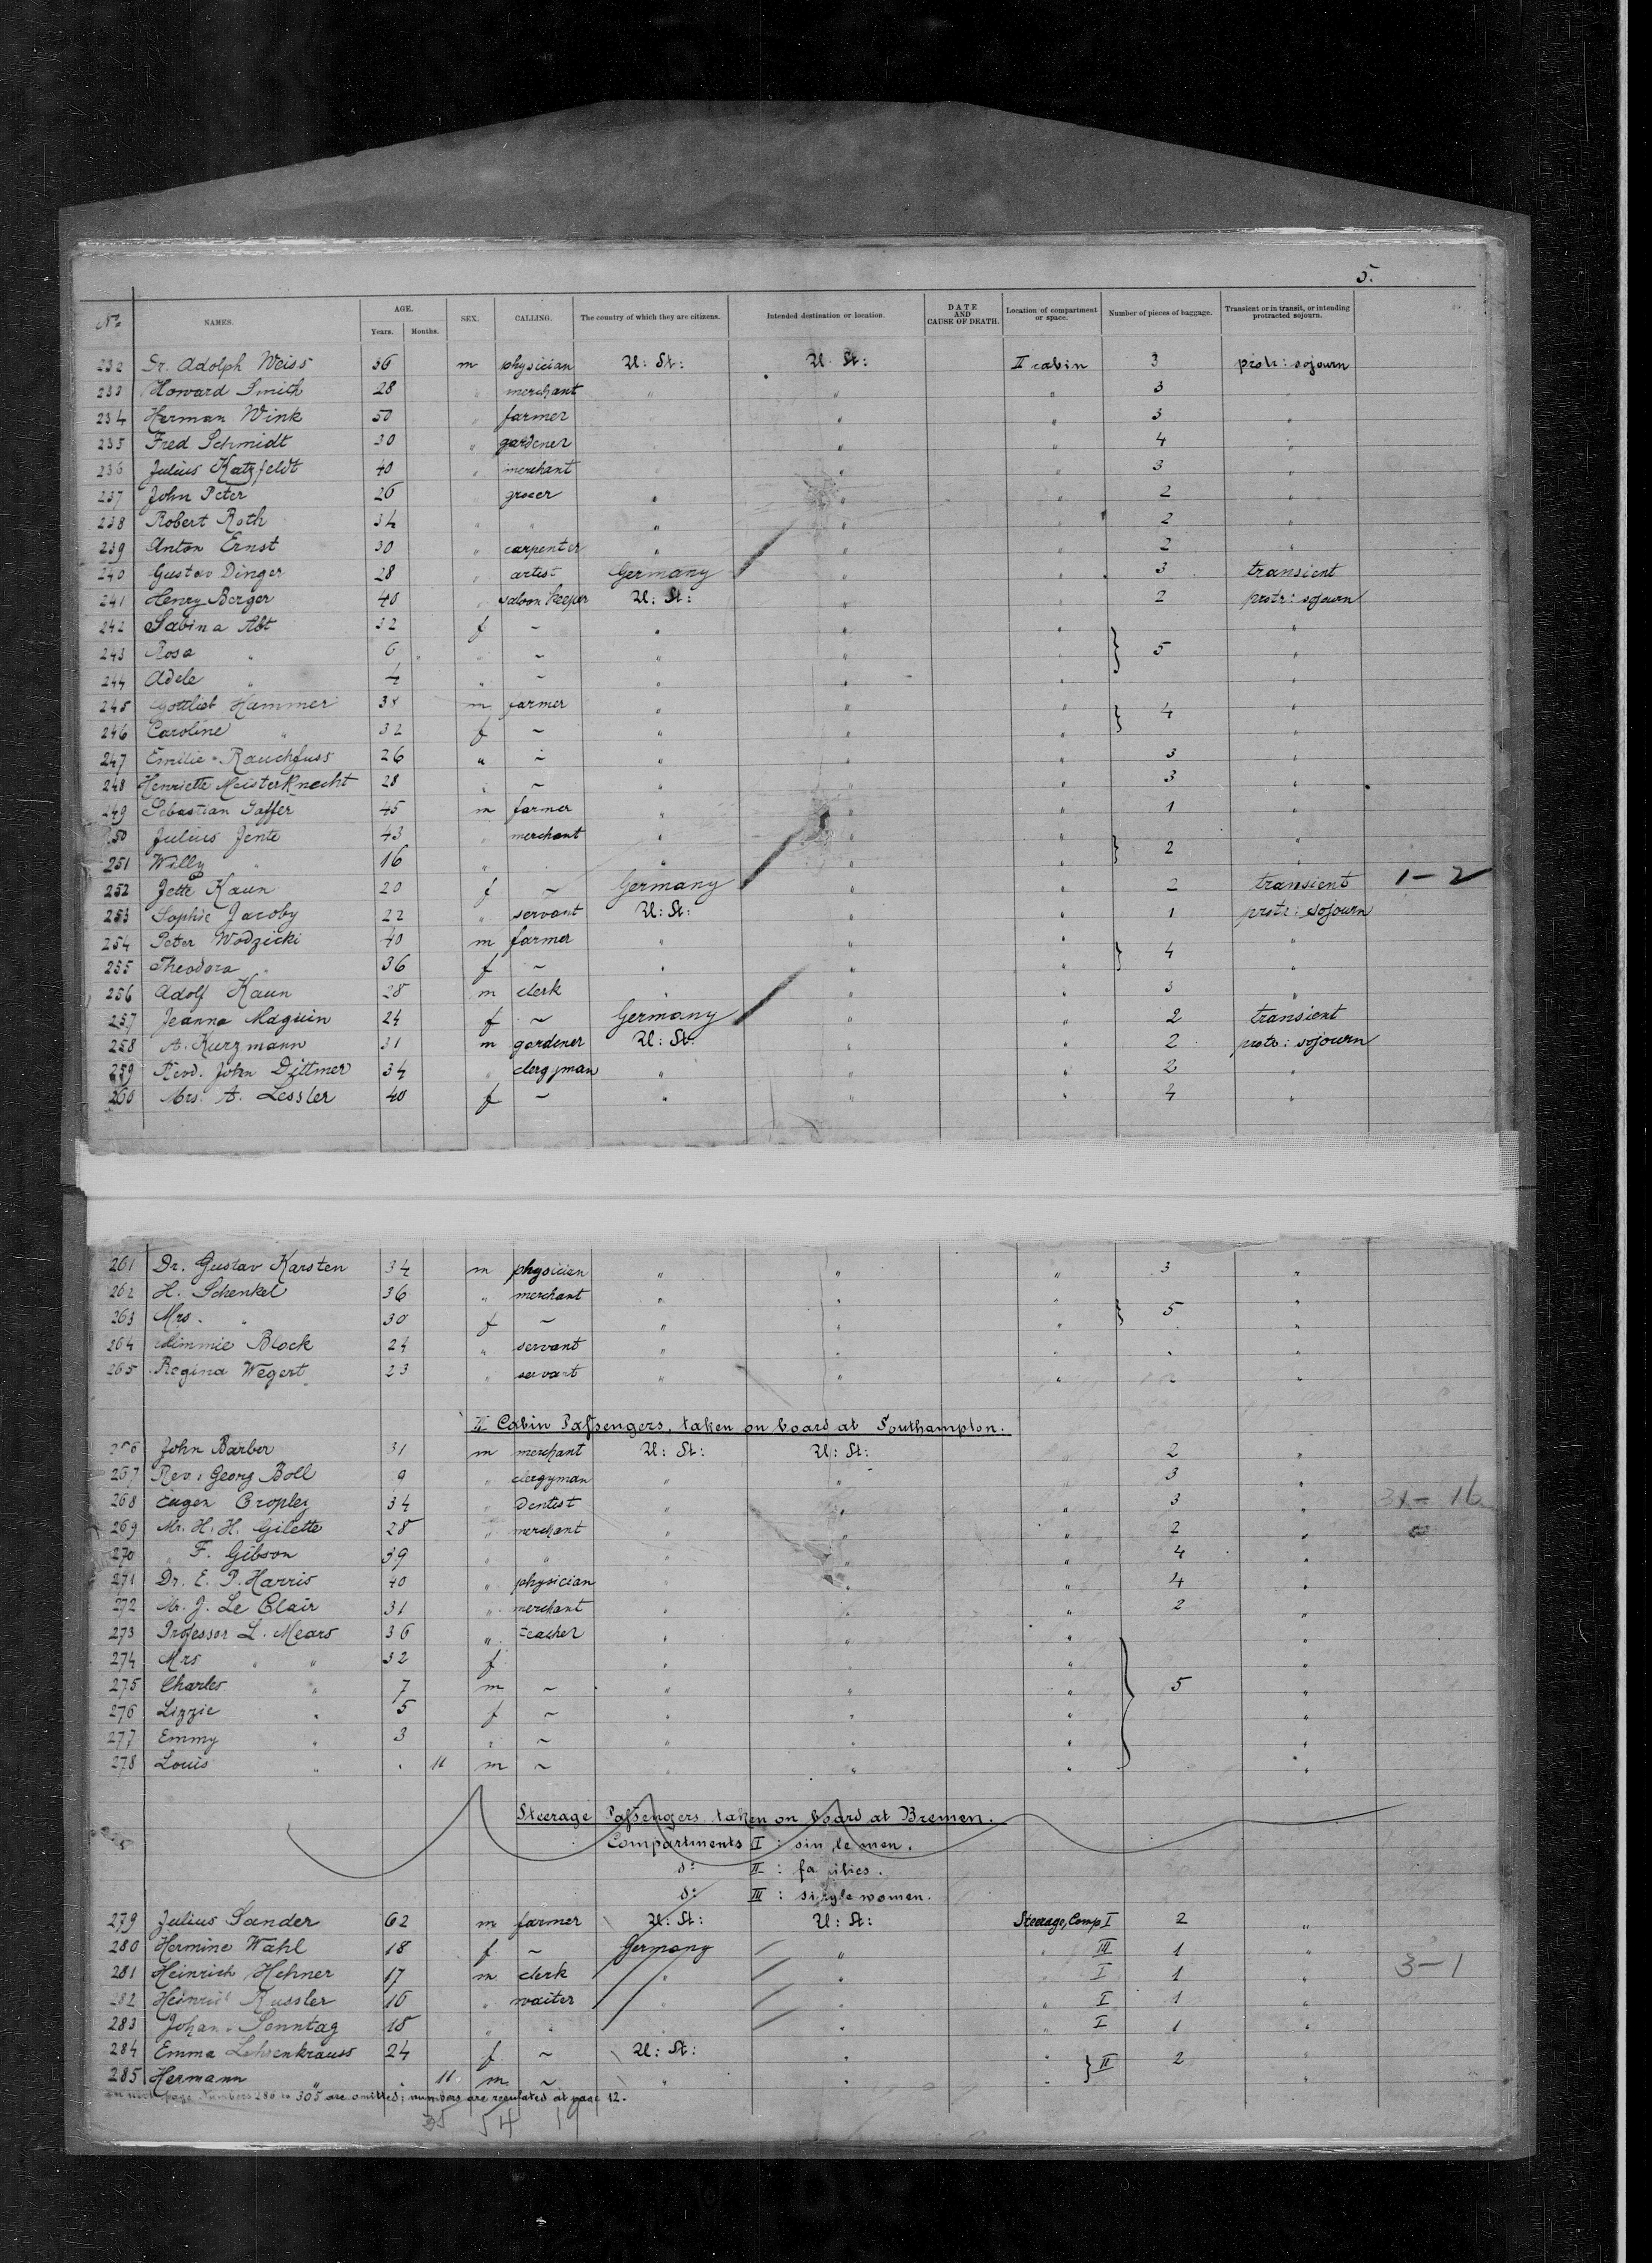 5.
No. NAMES. AGE. Years. Months. SEX. CALLING. The country of which they are citizens. Intended destination or location. DATE AND CAUSE OF DEATH. Location of compartment or space. Number of pieces of baggage. Transient or in transit, or intending protracted sojourn.
232 Dr. Adolph Weiss 36 m physician U: St: U: St: II cabin 3 protr: sojourn
233 Howard Smith 28 " merchant " " " 3 "
234 Herman Wink 50 " farmer " " 3 "
235 Fred Schmidt 30 " gardener " " 4 "
236 Julius Katzfeldt 40 " merchant " " 3 "
237 John Peter 26 " grocer " " " 2 "
238 Robert Roth 34 " " " " " 2 "
239 Anton Ernst 30 " carpenter " " " 2 "
240 Gustav Dinger 28 " artist Germany " " 3 transient
241 Henry Berger 40 " saloon keeper U: St: " " 2 protr: sojourn
242 Sabina Abt 32 f ~ " " " "
243 Rosa " 6 " " ~ " " " } 5 "
244 Adele " 4 " ~ " " " "
245 Gottlieb Hammer 38 m farmer " " " } 4 "
246 Caroline " 32 f ~ " " " "
247 Emilie Rauchfuss 26 " ~ " " " 3 "
248 Henriette Meisterknecht 28 " ~ " " " 3 "
249 Sebastian 45 m farmer " " " 1 "
250 Julius Jente 43 " merchant " " " } 2 "
251 Willy " 16 " " " "
252 Jette Kaun 20 f ~ Germany " " 2 transient 1-2
253 Sophie Jacoby 22 " servant U: St: " " 1 protr: sojourn
254 Peter Wodzicki 40 m farmer " " " } 4 "
255 Theodora " 36 f ~ " " " "
256 Adolf Kaun 28 m clerk " " " 3 "
257 Jeanne Maguin 24 f ~ Germany " " 2 transient
258 A. Kurzmann 31 m gardener U: St: " " 2 protr: sojourn
259 Revd. John Dittmer 34 " clergyman " " " 2 "
260 Mrs. A. Lessler 40 f ~ " " " 4 "
261 Dr. Gustav Karsten 34 m physician " " " 3 "
262 H. Schenkel 36 " merchant " " " } 5 "
263 Mrs. " 30 f ~ " " " "
264 Mimmie Block 24 " servant " " " " "
265 Regina Wegert 23 " servant " " " " "
II Cabin Passengers, taken on board at Southampton.
266 John Barber 31 m merchant U: St: U: St: " 2 "
267 Rev: Georg Boll 9 " clergyman " " " 3 "
268 Eugen Cropley 34 " Dentist " " " 3 " 31-16
269 Mr. H. H. Gilette 28 " merchant " " " 2 "
270 " F. Gibson 39 " " " " " 4 "
271 Dr. E. P. Harris 40 " physician " " " 4 "
272 Mr. J. Le Clair 31 " merchant " " " 2 "
273 Professor L. Mears 36 " teacher " " " "
274 Mrs " " 32 f " " " "
275 Charles " 7 m ~ " " " } 5 "
276 Lizzie " 5 f ~ " " " "
277 Emmy " 3 " ~ " " " "
278 Louis " . 11 m ~ " " " "
Steerage Passengers taken on board at Bremen.
Compartments I : single men.
do: II : families.
do: III : single women.
279 Julius Sander 62 m farmer U: St: U: St: Steerage, Comp I 2 "
280 Hermine Wahl 18 f ~ Germany " " III 1 "
281 Heinrich Hehner 17 m clerk " " " I 1 " 3-1
282 Heinrich Kussler 16 " waiter " " " I 1 "
283 Johann Sonntag 18 " " " " " I 1 "
284 Emma Lehrenkrauss 24 f ~ U: St: " " } II 2 "
285 Hermann " . 11 m ~ " " " "
next page Numbers 286 to 305 are omitted; numbers are regulated at page 12.
35 54 11